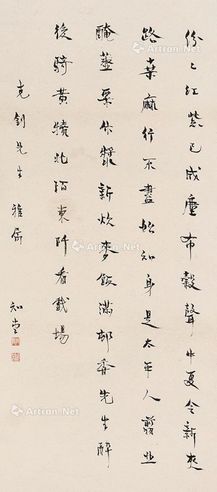 紛々紅紫已成塵布穀聲中夏令新夾
路桑麻行不盡始知身是太平人剪韭
醃虀粟作漿新炊麥飯滿邨香先生醉
後騎黃犢北陌東阡看戲場
克釗先生 雅屬 知堂